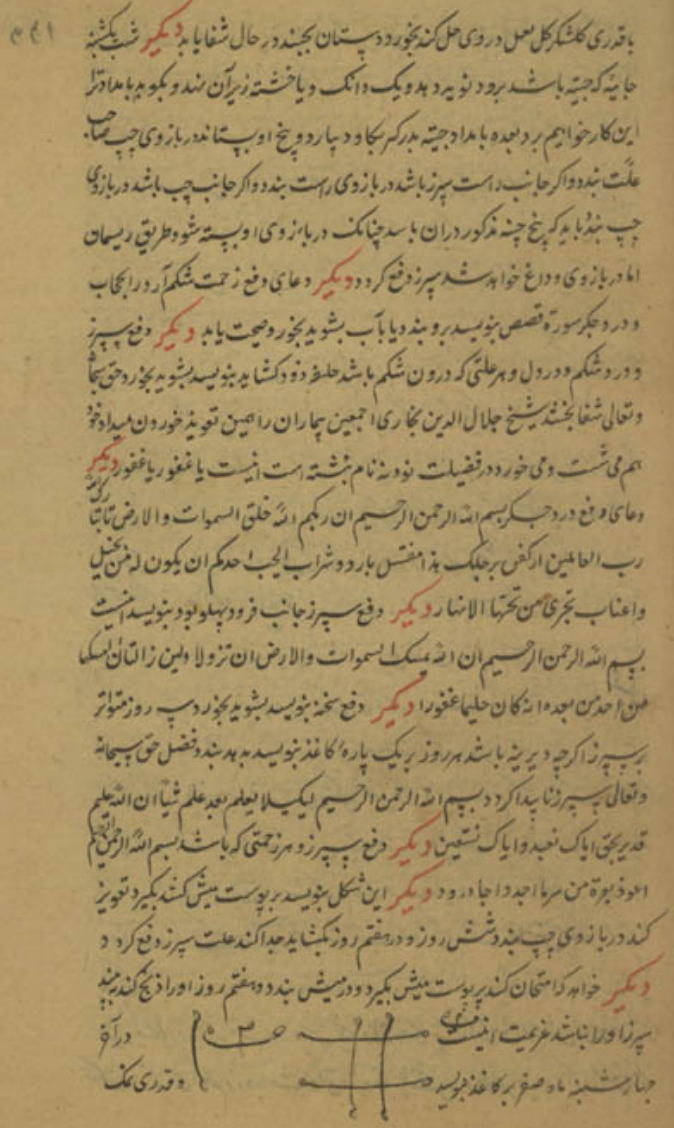 باقدری کلشکر کل لعل در وی حل کند بخورد دپستان بجنبد در حال شفا یابد دیکیر شب یکشنبه
جائیکه جیته باشد برود نوبه دهد ویک دانک و یا خشته زیر آن نهد و بکوید بامداد ترا
این کار خواهیم برد بعده بامداد جیته بدر کبر بکاود بیارد و بیخ او بستاند در بازوی چپ صاحب
علت بندد و اکر جانب راست سپرز باشد در بازوی راست بندد و اکر جانب چپ باشد در بازوی
چپ بندد باید که بیخ جیته مذکور در ان باسد چنانک در بازوی او بسته شود طریق ریسمان
اما در بازوی و داغ خواهد شد سپرز دفع کردد دیکیر دعای دفع زحمت شکم آرد در الحجاب
و درد جکر سورة قصص بنویسد برو بندد یا بآب بشوید بخورد صحت یابد دیکیر دفع سپرز
و درد شکم و درد دل و هر علتی که درون شکم باشد زود کشاید بنویسد بشوید بخورد حق سبحانه
وتعالی شفا بخشد شیخ جلال الدین بخاری اجمعین بیماران را همین تعویذ خوردن میداد خود
هم می شست و می خورد در فضیلت نود نه نام نبشته است اینست یا غفور یا غفور دیکیر
دعای دفع درد جکر بسم الله الرحمن الرحیم ان ربکم الله خلق السموات والارض
رب العالمین ارکض برجلک هذا مغتسل بارد وشراب ایحب احدکم ان یکون له من نخیل
واعناب تجری من تحتها الانهار دیکیر دفع سپرز جانب فرود پهلو بود بنویسد اینست
بسم الله الرحمن الرحیم ان الله یمسک السموات والارض ان تزولا ولئن زالتا ان امسکهما
من احد من بعده انه کان حلیما غفورا دیکیر دفع سخنه بنویسد بشوید بخورد سه روز متواتر
بر سپرز اکرچه دیرینه باشد هر روز بر یک پاره کاغذ بنویسد بدهد بندد بفضل حق سبحانه
وتعالی سپرز نا پیدا کردد بسم الله الرحمن الرحیم لیکیلا یعلم بعد علم شیأ ان الله علیم
قدیر بحق ایاک نعبد وایاک نستعین دیکیر دفع سپرز و هر زحمتی که باشد بسم الله الرحمن الرحیم
اعوذ بعزة من دیکیر این شکل بنویسد بر پوست میش کند بکیرد تعویز
کند در بازوی چپ بندد شش روز و در هفتم روز بکشاید جدا کند علت سپرز دفع کردد
دیکیر خواهد که امتحان کند بر پوست میش بکیرد و در میش بندد و هفتم روز او را ذبح کند ببیند
سپرز او را نباشد عزیمت اینست در آخر
چهارشنبه ماه صفر بر کاغذ بنویسد و قدری نمک